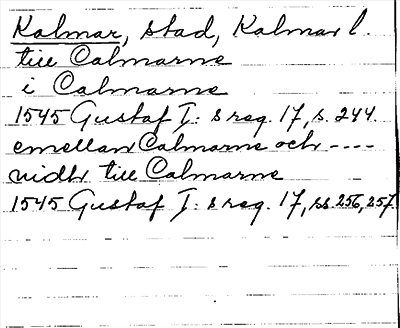 Kalmar, stad, Kalmar l.
till Calmarne
i Calmarne
1545 Gustaf I: s reg. 17, s. 244.
emellan Calmarne och ----
vidh till Calmarne
1545 Gustaf I: s reg. 17, ss. 256, 257